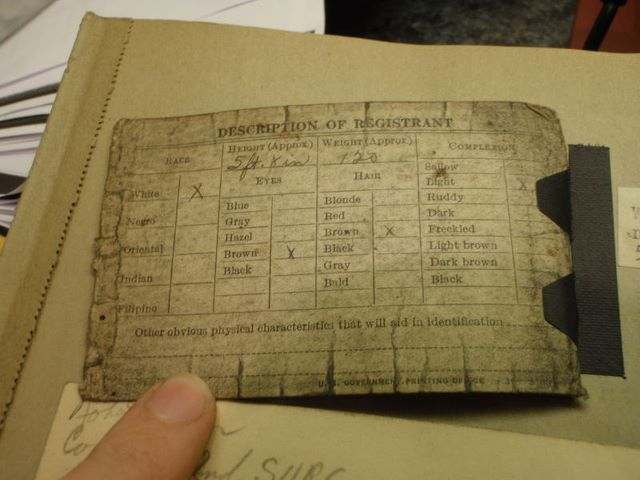 DESCRIPTION OF REGISTRANT
RACE
HEIGHT (Approx)
WEIGHT (Approx)
COMPLEXION
5 ft. 8 in
120
EYES
HAIR
White X
Negro
Oriental
Indian
Filipino
Blue
Gray
Hazel
Brown X
Black
Blonde
Red
Brown X
Black
Gray
Bald
Sallow
Light X
Ruddy
Dark
Freckled
Light brown
Dark brown
Black
Other obvious physical characteristics that will aid in identification
U. S. GOVERNMENT PRINTING OFFICE